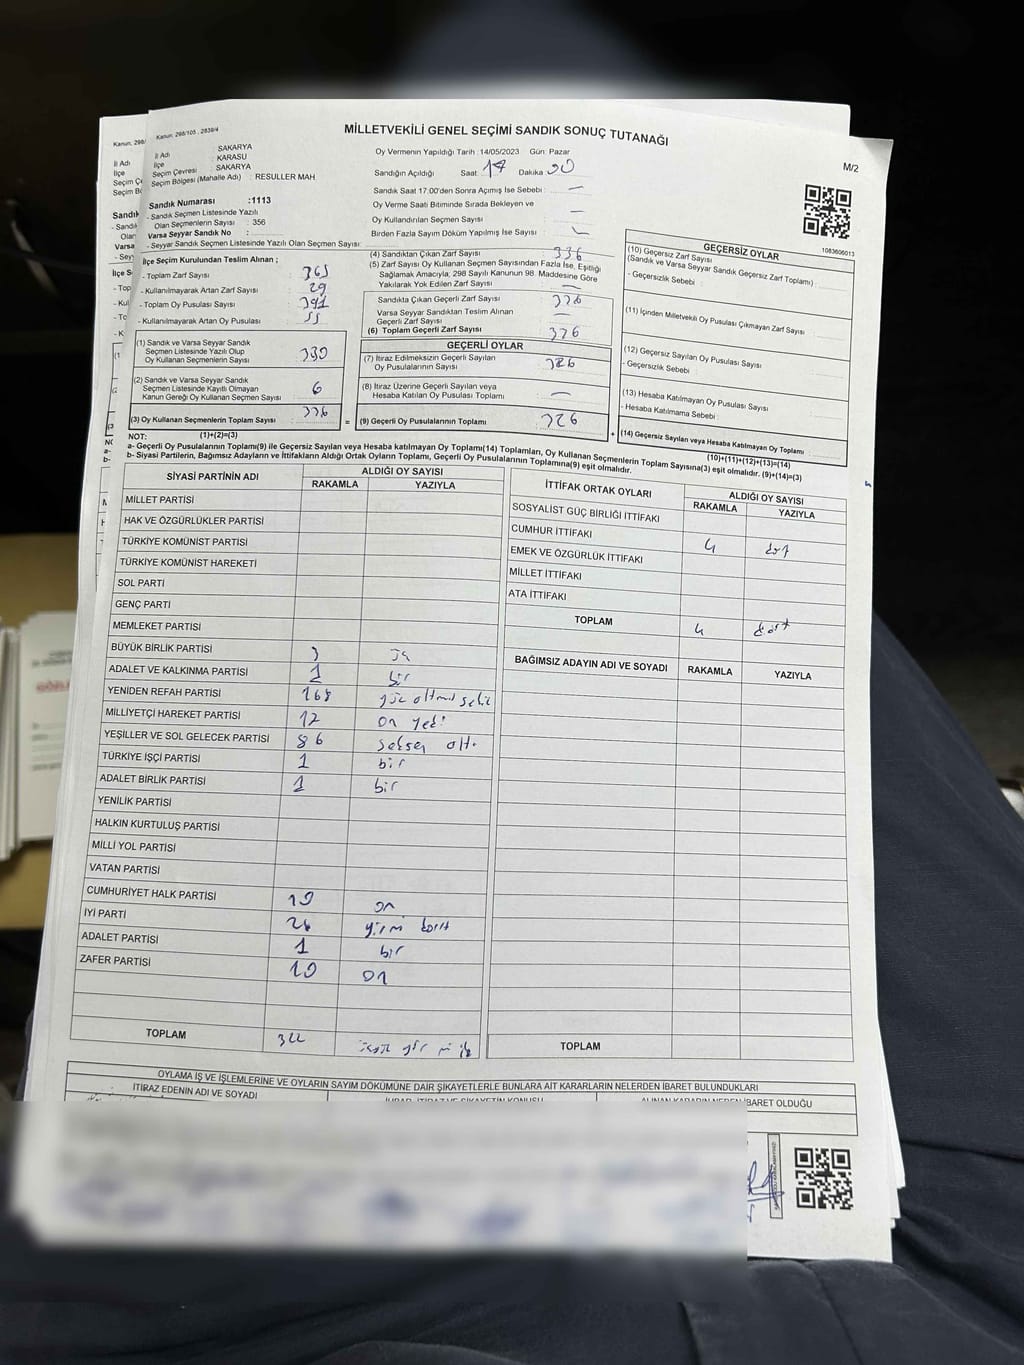 Kanun, 298/105 , 2839/4
MİLLETVEKİLİ GENEL SEÇİMİ SANDIK SONUÇ TUTANAĞI
M/2
İl Adı : SAKARYA
İlçe : KARASU
Seçim Çevresi : SAKARYA
Seçim Bölgesi (Mahalle Adı) : RESULLER MAH
Sandık Numarası :1113
- Sandık Seçmen Listesinde Yazılı
Olan Seçmenlerin Sayısı : 356
Varsa Seyyar Sandık No :
- Seyyar Sandık Seçmen Listesinde Yazılı Olan Seçmen Sayısı:
Oy Vermenin Yapıldığı Tarih :14/05/2023 Gün: Pazar
Sandığın Açıldığı Saat: 17 Dakika
Sandık Saat 17:00'den Sonra Açımış İse Sebebi : —
Oy Verme Saati Bitiminde Sırada Bekleyen ve
Oy Kullandırılan Seçmen Sayısı : —
Birden Fazla Sayım Döküm Yapılmış İse Sayısı :
1083606013
İlçe Seçim Kurulundan Teslim Alınan ;
- Toplam Zarf Sayısı : 365
- Kullanılmayarak Artan Zarf Sayısı : 29
- Toplam Oy Pusulası Sayısı : 391
- Kullanılmayarak Artan Oy Pusulası : 55
(1) Sandık ve Varsa Seyyar Sandık
Seçmen Listesinde Yazılı Olup
Oy Kullanan Seçmenlerin Sayısı 330
(2) Sandık ve Varsa Seyyar Sandık
Seçmen Listesinde Kayıtlı Olmayan
Kanun Gereği Oy Kullanan Seçmen Sayısı 6
(3) Oy Kullanan Seçmenlerin Toplam Sayısı 336
(1)+(2)=(3)
(4) Sandıktan Çıkan Zarf Sayısı 336
(5) Zarf Sayısı Oy Kullanan Seçmen Sayısından Fazla İse, Eşitliği
Sağlamak Amacıyla, 298 Sayılı Kanunun 98. Maddesine Göre
Yakılarak Yok Edilen Zarf Sayısı : —
Sandıkta Çıkan Geçerli Zarf Sayısı 336
Varsa Seyyar Sandıktan Teslim Alınan
Geçerli Zarf Sayısı —
(6) Toplam Geçerli Zarf Sayısı 336
GEÇERLİ OYLAR
(7) İtiraz Edilmeksizin Geçerli Sayılan
Oy Pusulalarının Sayısı : 326
(8) İtiraz Üzerine Geçerli Sayılan veya
Hesaba Katılan Oy Pusulası Toplamı : —
= (9) Geçerli Oy Pusulalarının Toplamı 326
GEÇERSİZ OYLAR
(10) Geçersiz Zarf Sayısı
(Sandık ve Varsa Seyyar Sandık Geçersiz Zarf Toplamı) :
- Geçersizlik Sebebi :
(11) İçinden Milletvekili Oy Pusulası Çıkmayan Zarf Sayısı
(12) Geçersiz Sayılan Oy Pusulası Sayısı
- Geçersizlik Sebebi :
(13) Hesaba Katılmayan Oy Pusulası Sayısı
- Hesaba Katılmama Sebebi :
+ (14) Geçersiz Sayılan veya Hesaba Katılmayan Oy Toplamı :
(10)+(11)+(12)+(13)=(14)
NOT:
a- Geçerli Oy Pusulalarının Toplamı(9) ile Geçersiz Sayılan veya Hesaba katılmayan Oy Toplamı(14) Toplamları, Oy Kullanan Seçmenlerin Toplam Sayısına(3) eşit olmalıdır. (9)+(14)=(3)
b- Siyasi Partilerin, Bağımsız Adayların ve İttifakların Aldığı Ortak Oyların Toplamı, Geçerli Oy Pusulalarının Toplamına(9) eşit olmalıdır.
SİYASİ PARTİNİN ADI ALDIĞI OY SAYISI
RAKAMLA YAZIYLA
MİLLET PARTİSİ
HAK VE ÖZGÜRLÜKLER PARTİSİ
TÜRKİYE KOMÜNİST PARTİSİ
TÜRKİYE KOMÜNİST HAREKETİ
SOL PARTİ
GENÇ PARTİ
MEMLEKET PARTİSİ
BÜYÜK BİRLİK PARTİSİ 3
ADALET VE KALKINMA PARTİSİ 1 bir
YENİDEN REFAH PARTİSİ 168
MİLLİYETÇİ HAREKET PARTİSİ on yedi
YEŞİLLER VE SOL GELECEK PARTİSİ 86 seksen altı
TÜRKİYE İŞÇİ PARTİSİ 1 bir
ADALET BİRLİK PARTİSİ 1 bir
YENİLİK PARTİSİ
HALKIN KURTULUŞ PARTİSİ
MİLLİ YOL PARTİSİ
VATAN PARTİSİ
CUMHURİYET HALK PARTİSİ 10 on
İYİ PARTİ 24
ADALET PARTİSİ 1 bir
ZAFER PARTİSİ 10 on
TOPLAM 322
İTTİFAK ORTAK OYLARI ALDIĞI OY SAYISI
RAKAMLA YAZIYLA
SOSYALİST GÜÇ BİRLİĞİ İTTİFAKI
CUMHUR İTTİFAKI 4 dört
EMEK VE ÖZGÜRLÜK İTTİFAKI
MİLLET İTTİFAKI
ATA İTTİFAKI
TOPLAM 4 dört
BAĞIMSIZ ADAYIN ADI VE SOYADI RAKAMLA YAZIYLA
TOPLAM
OYLAMA İŞ VE İŞLEMLERINE VE OYLARIN SAYIM DÖKÜMÜNE DAİR ŞİKAYETLERLE BUNLARA AİT KARARLARIN NELERDEN İBARET BULUNDUKLARI
İTİRAZ EDENİN ADI VE SOYADI